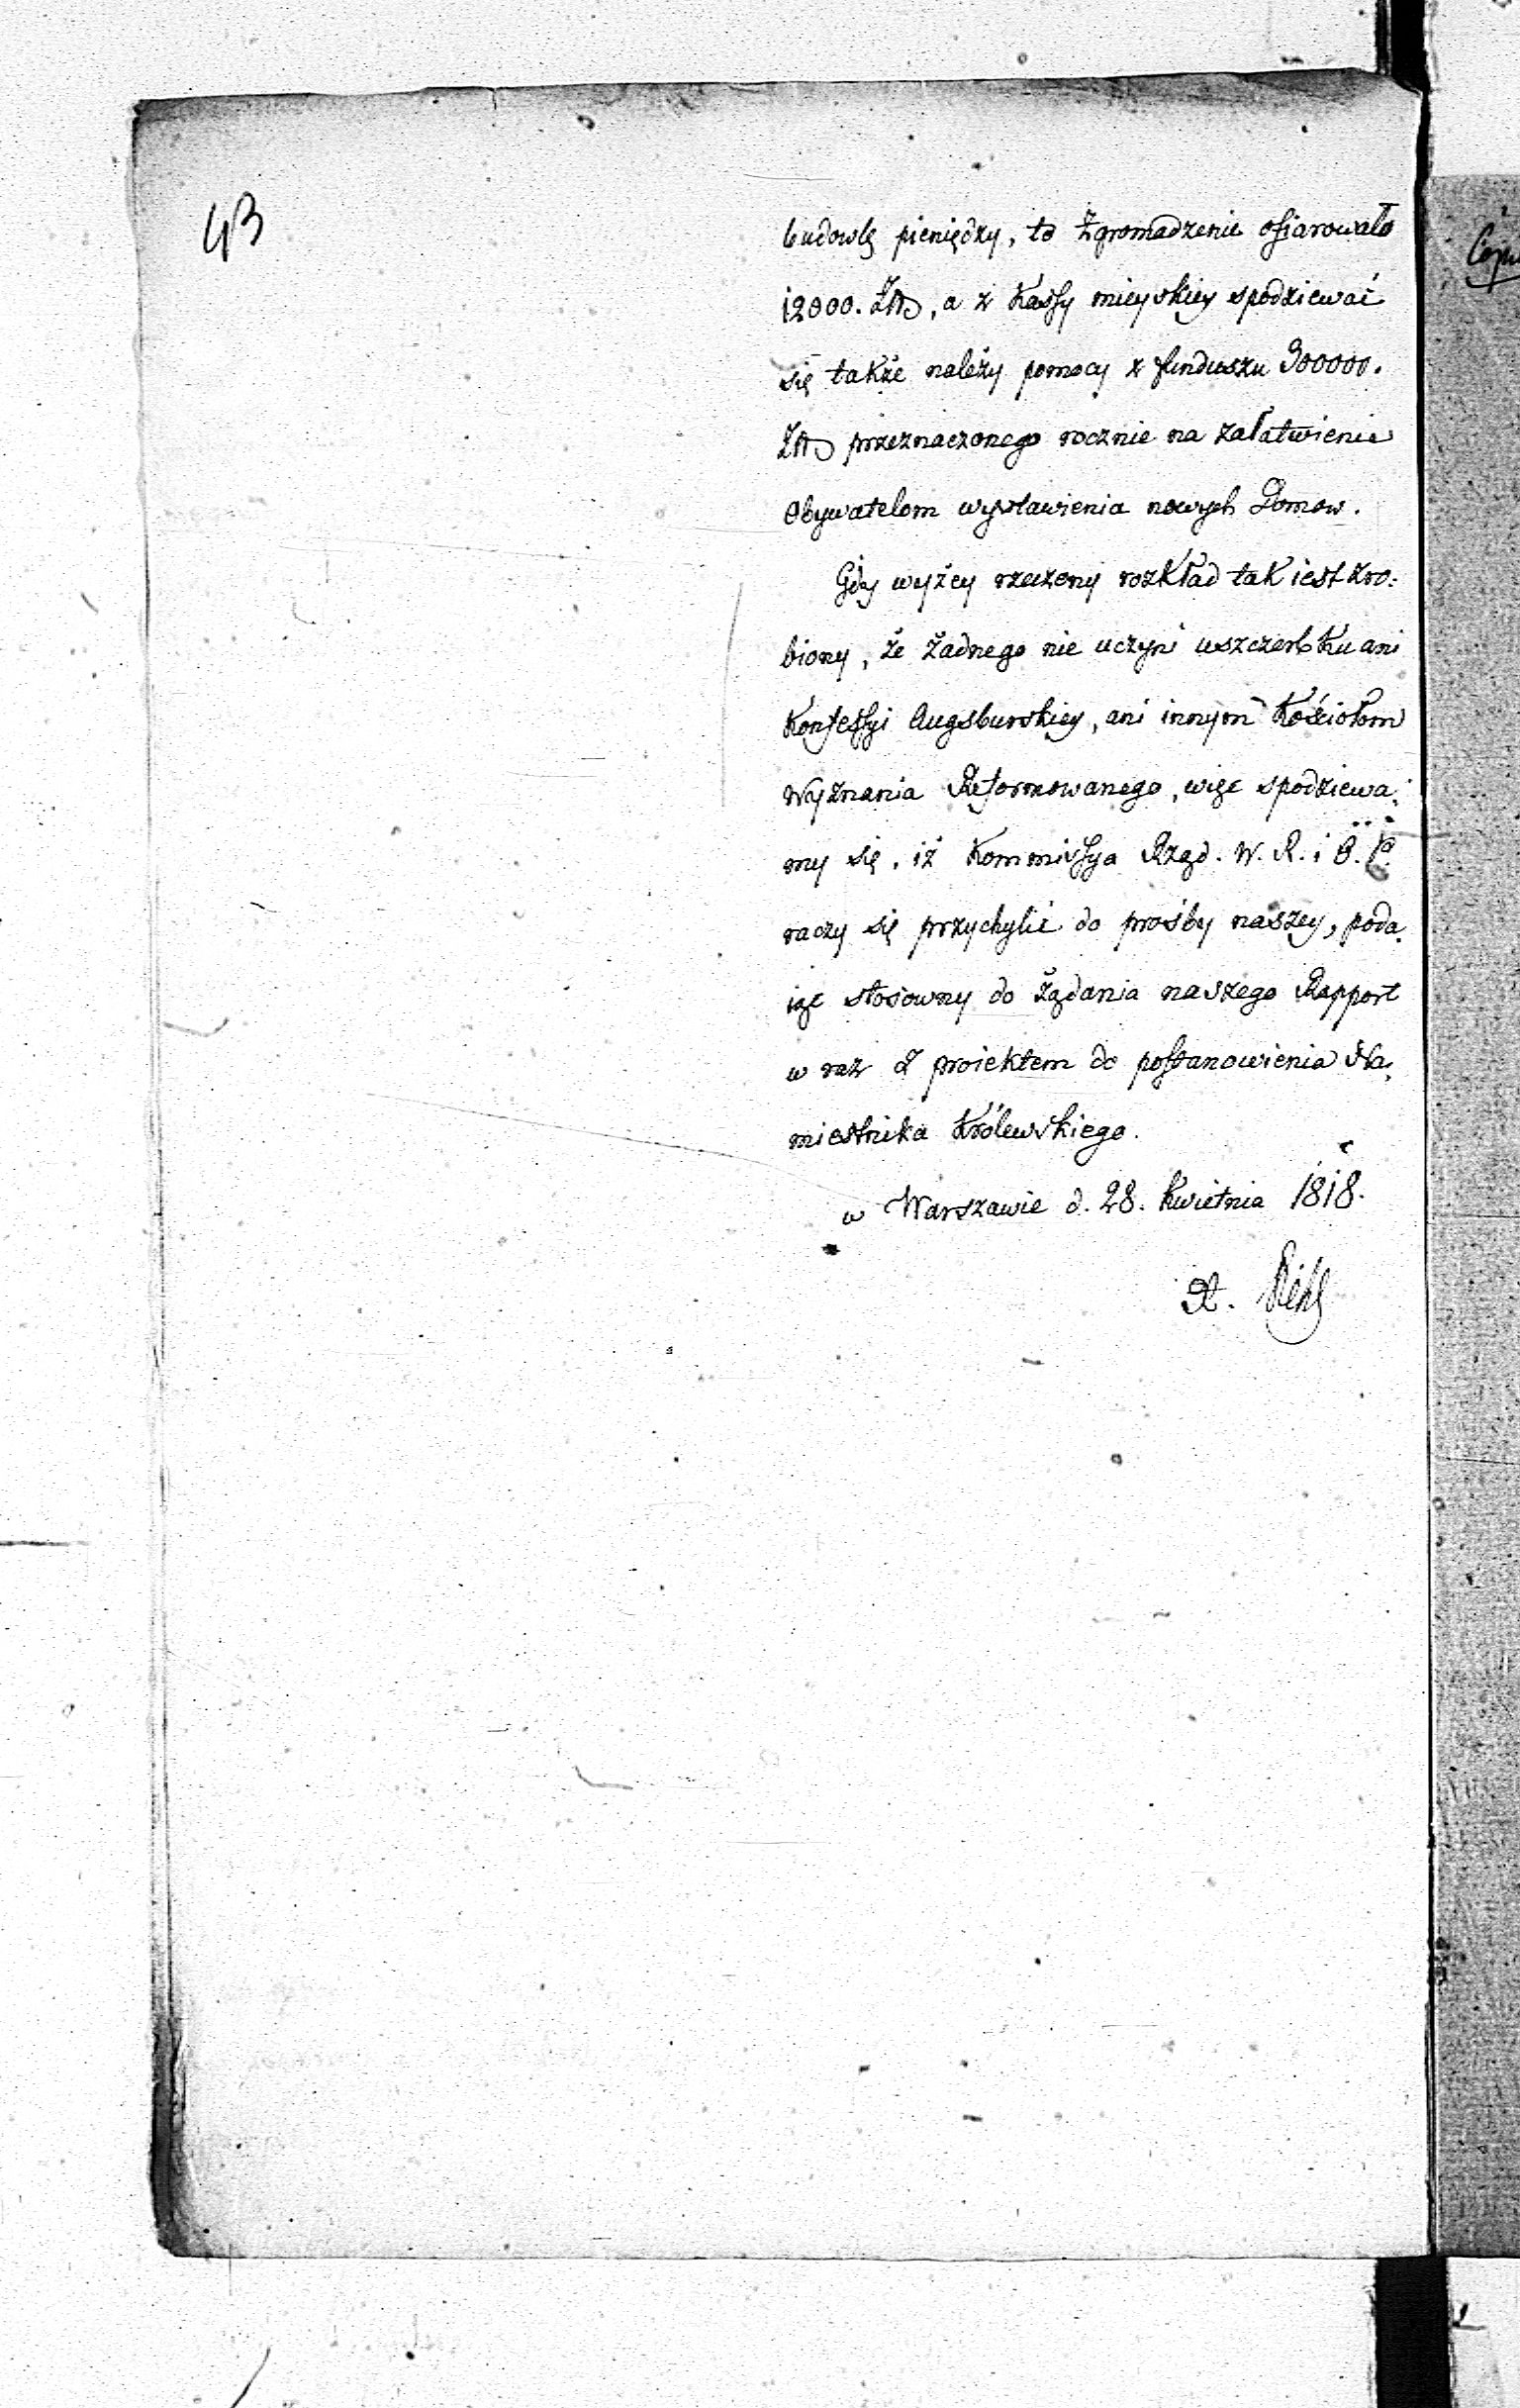 43
budowlę pieniędzy, to Zgromadzenie ofiarowało
12000. Złł, a z Kassy mieyskiey spodziewać
się także należy pomocy z funduszu 300000.
Złł przeznaczonego rocznie na załatwienie
Obywatelom wystawienia nowych Domow.
Gdy wyżey rzeczeny rozkład tak iest zro-
biony, że żadnego nie uczyni uszczerbku ani
Konfessyi Augsburskiey, ani innym Kościołom
Wyznania Reformowanego, więc spodziewa-
my się, iż Kommissya Rząd. W. R. i O. P.
raczy się przychylić do prośby naszey, poda-
iąc stosowny do żądania naszego Rapport
w raz z proiektem do postanowienia Na-
miestnika Królewskiego.
w Warszawie d. 28. Kwietnia 1818.